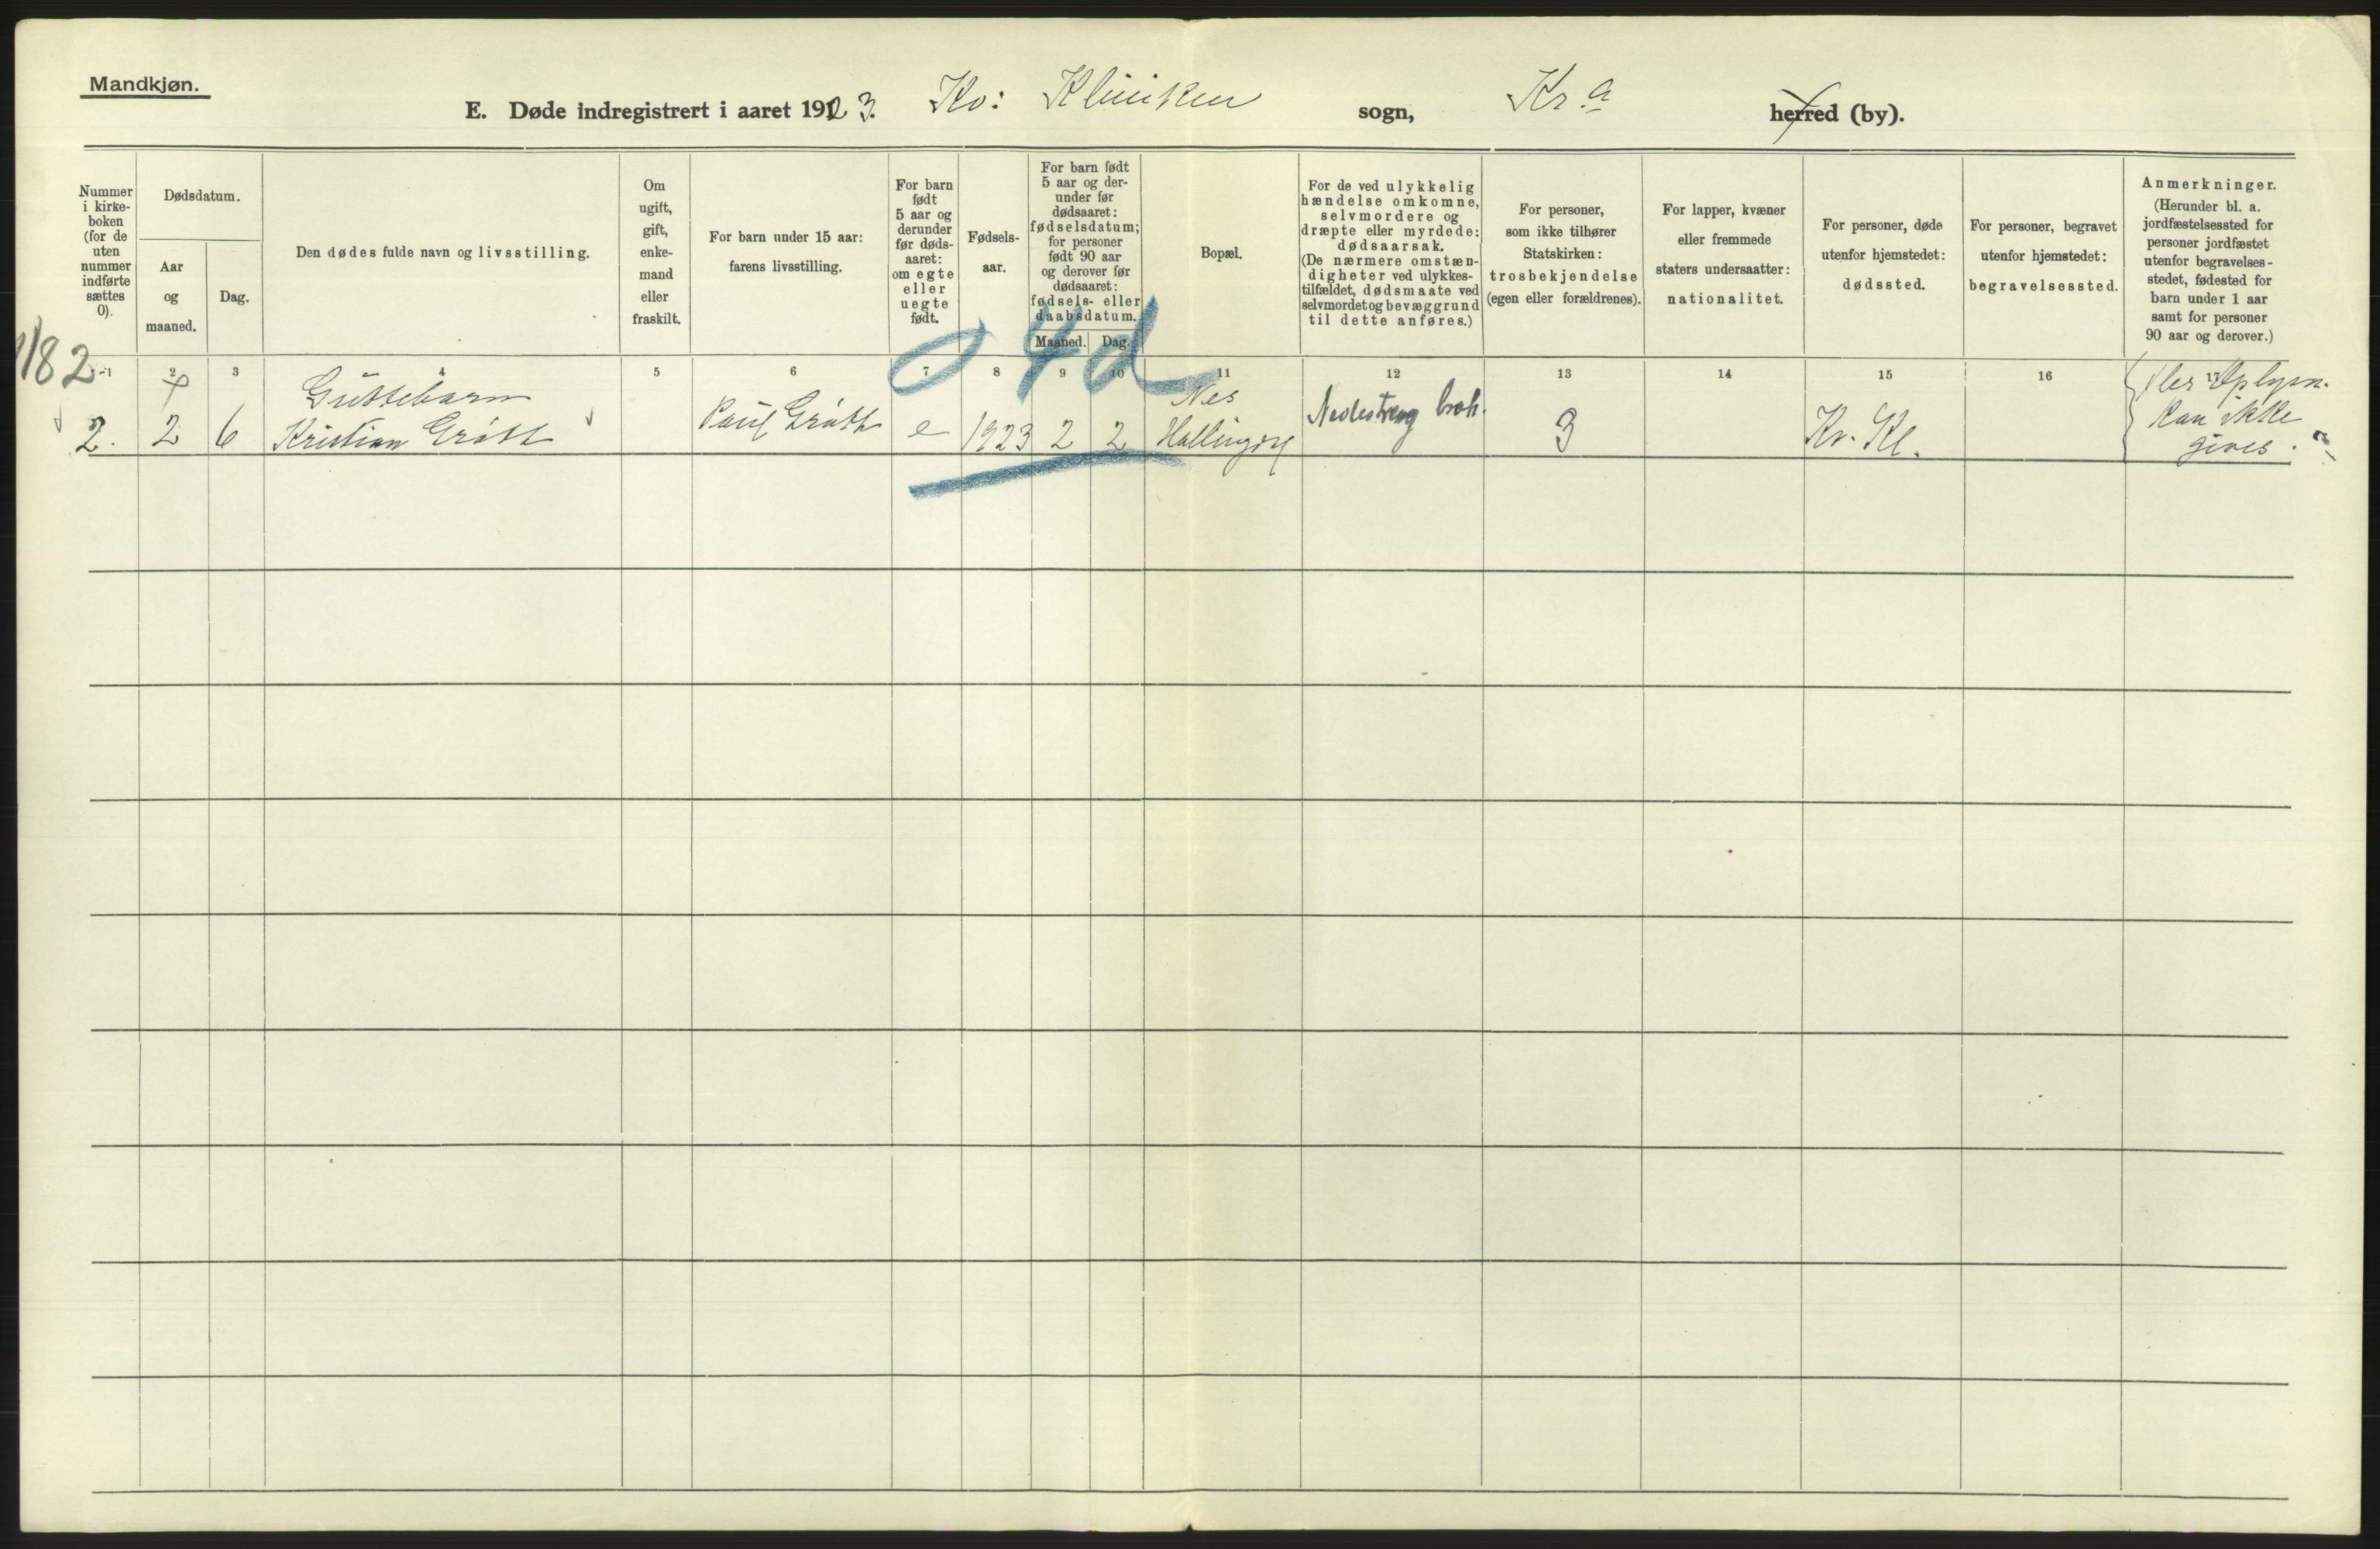 Mandkjøn.
E. Døde indregistrert i aaret 1923. Kv: Kliniken sogn, Kr.a herred (by).
Nummer
i kirke-
boken
(for de
uten
nummer
indførte
sættes
0).
Dødsdatum.
Aar
og
maaned.
Dag.
Den dødes fulde navn og livsstilling.
Om
ugift,
gift,
enke-
mand
eller
fraskilt.
For barn under 15 aar:
farens livsstilling.
For barn
født
5 aar og
derunder
før døds-
aaret:
om egte
eller
uegte
født.
Fødsels-
aar.
For barn født
5 aar og der-
under før
dødsaaret:
fødselsdatum;
for personer
født 90 aar
og derover før
dødsaaret:
fødsels- eller
daabsdatum.
Maaned. Dag.
Bopæl.
For de ved ulykkelig
hændelse omkomne,
selvmordere og
dræpte eller myrdede:
dødsaarsak.
(De nærmere omstæn-
digheter ved ulykkes-
tilfældet, dødsmaate ved
selvmord og bevæggrund
til dette anføres.)
For personer,
som ikke tilhører
Statskirken:
trosbekjendelse
(egen eller forældrenes).
For lapper, kvæner
eller fremmede
staters undersaatter:
nationalitet.
For personer, døde
utenfor hjemstedet:
dødssted.
For personer, begravet
utenfor hjemstedet:
begravelsessted.
Anmerkninger.
(Herunder bl. a.
jordfæstelsessted for
personer jordfæstet
utenfor begravelses-
stedet, fødested for
barn under 1 aar
samt for personer
90 aar og derover.)
1 2 3 4 5 6 7 8 9 10 11 12 13 14 15 16 17
182
0 4 d
2. 2 6
Guttebarn
Kristian Grøtt
Paul Grøtt
e 1923 2 2
Nes
Hallingd
3
Kv. Kl.
fler Oplysn.
kan ikke
gives.